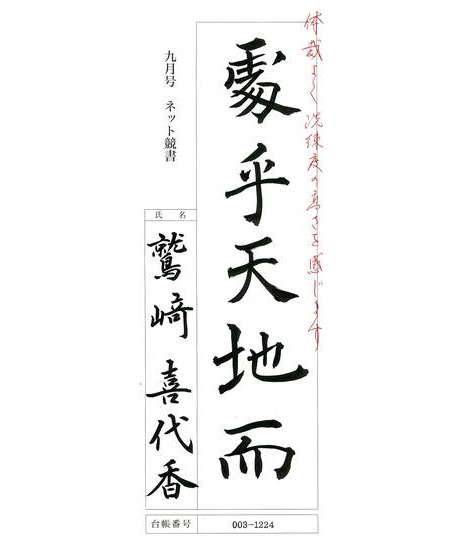 体裁よく洗練度の高さを感じます
處乎天地而
九月号 ネット競書
氏名
鷲﨑喜代香
台帳番号 003-1224